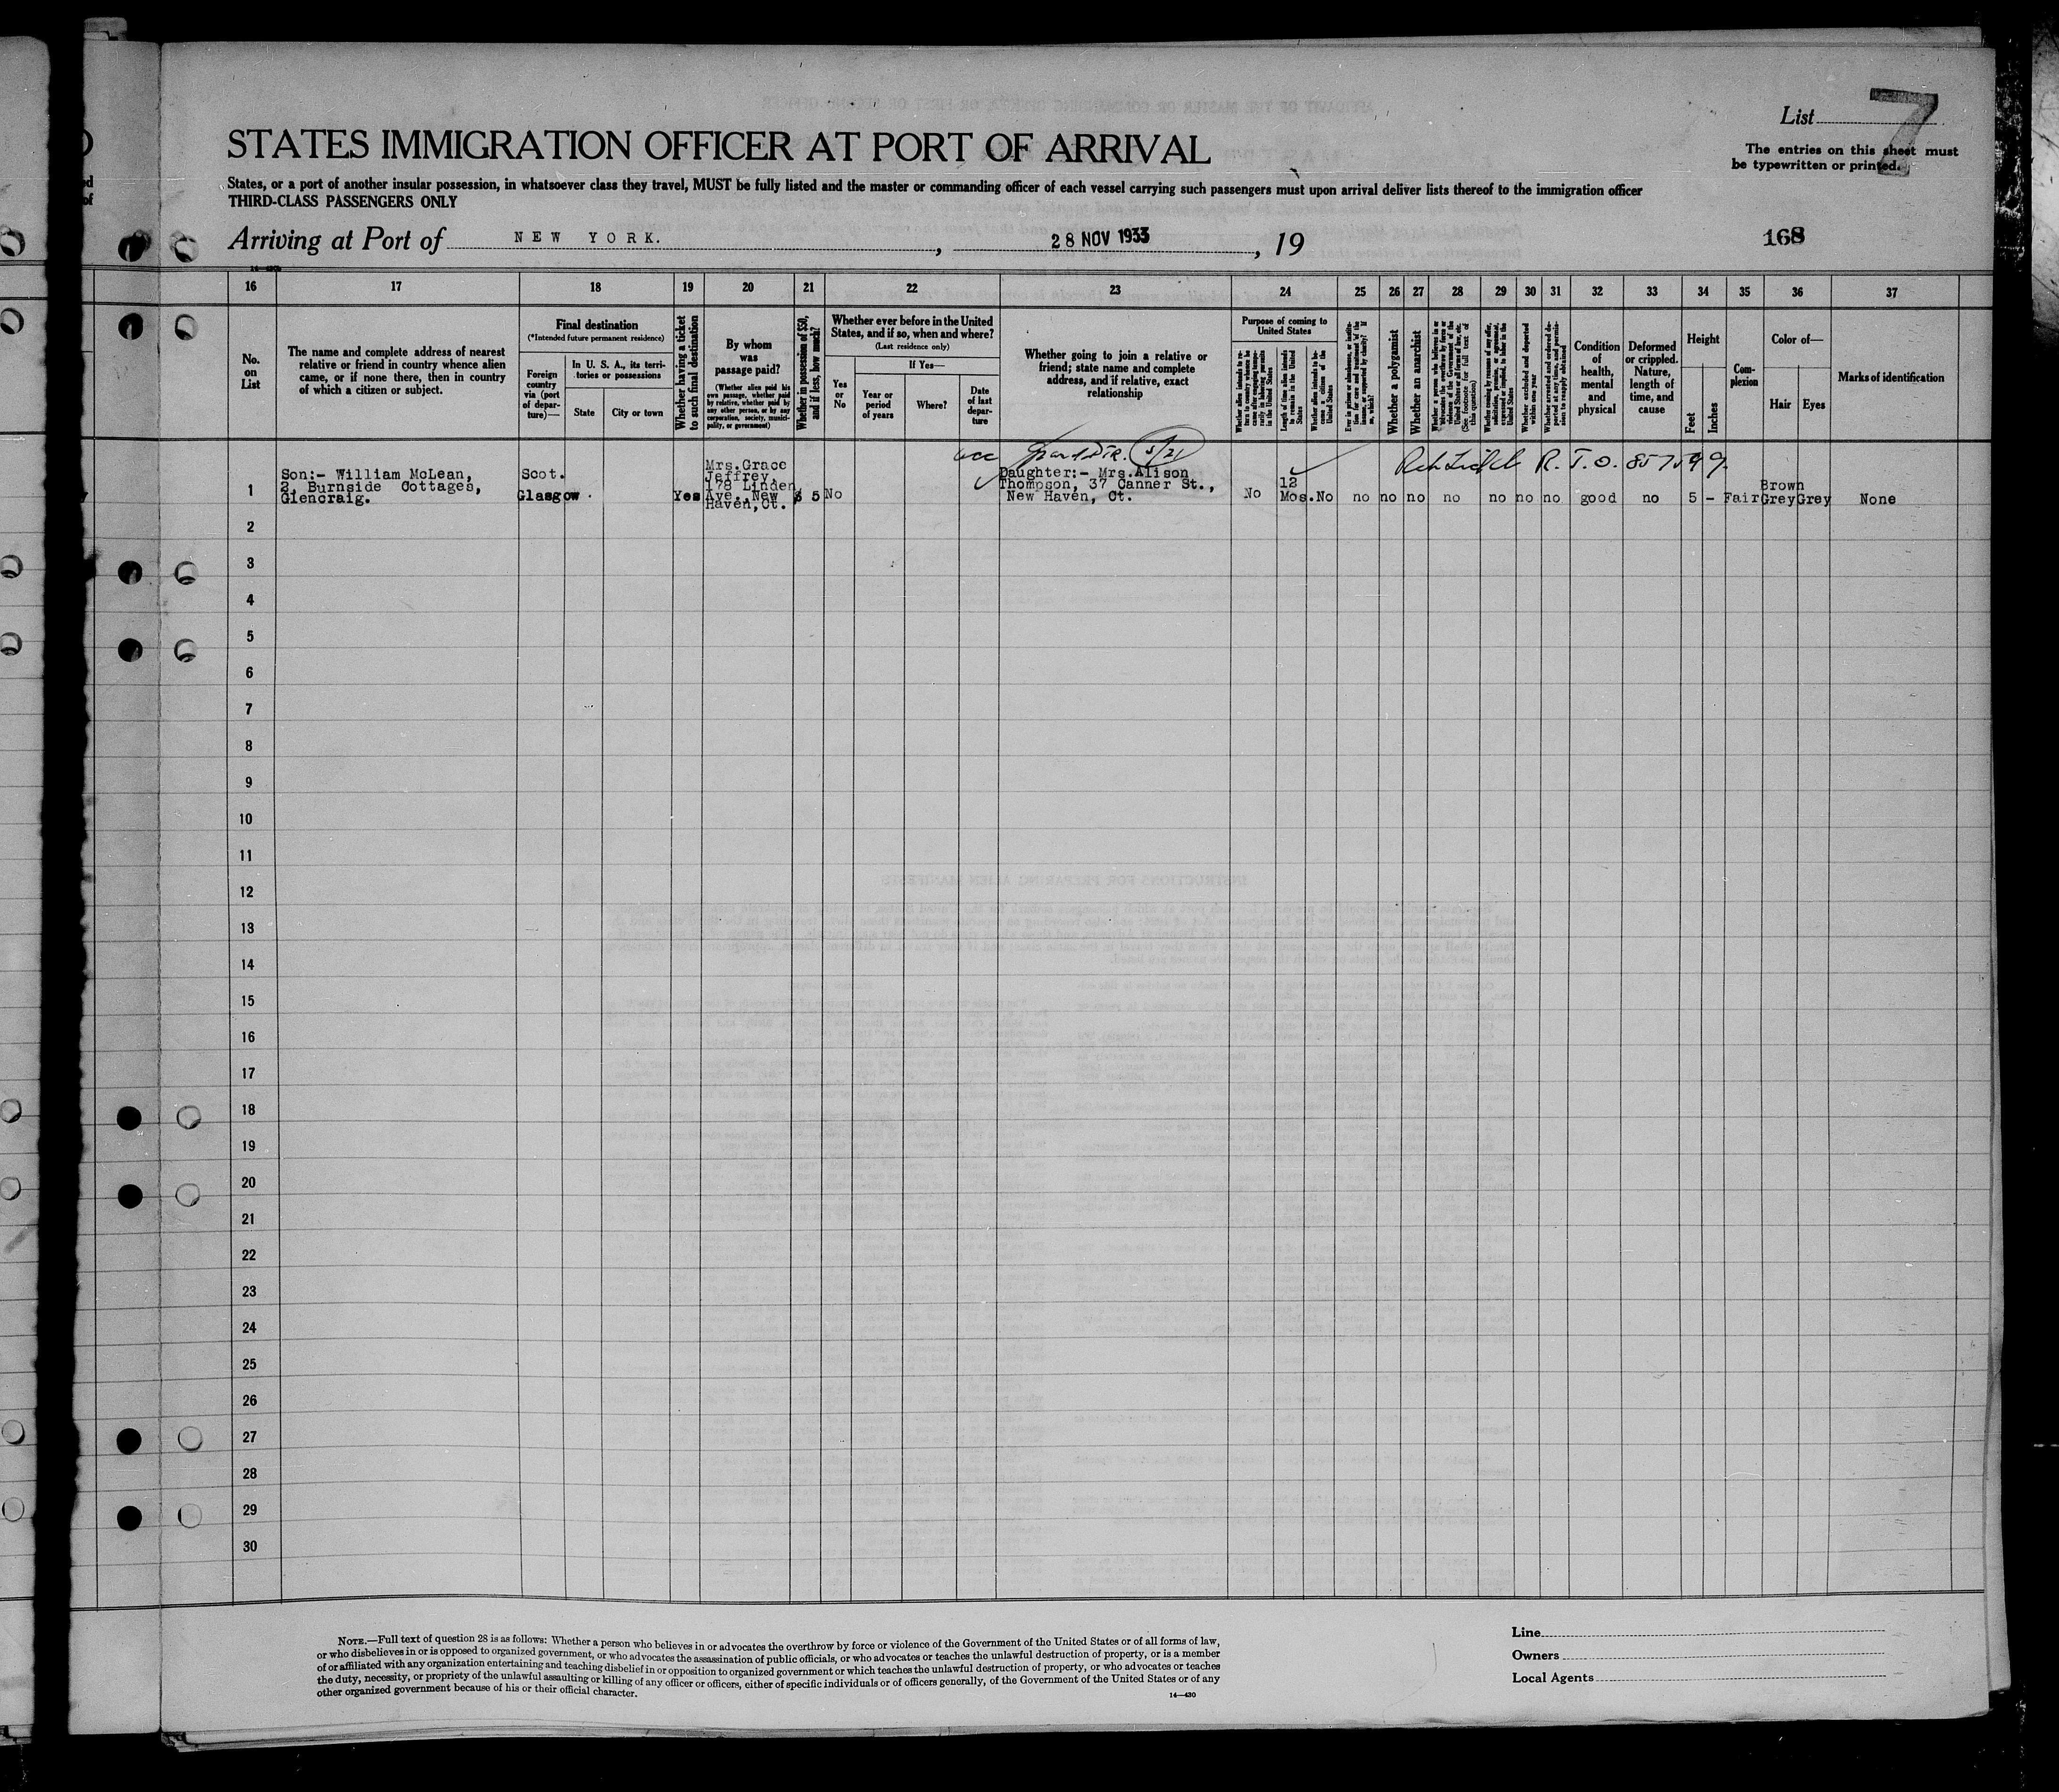 List 7
STATES IMMIGRATION OFFICER AT PORT OF ARRIVAL
The entries on this sheet must
be typewritten or printed.
States, or a port of another insular possession, in whatsoever class they travel, MUST be fully listed and the master or commanding officer of each vessel carrying such passengers must upon arrival deliver lists thereof to the immigration officer
THIRD-CLASS PASSENGERS ONLY
Arriving at Port of NEW YORK. , 28 NOV 1933 , 19
168
16 17 18 19 20 21 22 23 24 25 26 27 28 29 30 31 32 33 34 35 36 37
No.
on
List
The name and complete address of nearest
relative or friend in country whence alien
came, or if none there, then in country
of which a citizen or subject.
Final destination
(*Intended future permanent residence)
Foreign
country
via (port
of depar-
ture)—
In U. S. A., its terri-
tories or possessions
State
City or town
Whether having a ticket
to such final destination
By whom
was
passage paid?
(Whether alien paid his
own passage, whether paid
by relative, whether paid by
any other person, or by any
corporation, society, munici-
pality, or government)
Whether in possession of $50,
and if less, how much?
Whether ever before in the United
States, and if so, when and where?
(Last residence only)
Yes
or
No
If Yes—
Year or
period
of years
Where?
Date
of last
depar-
ture
Whether going to join a relative or
friend; state name and complete
address, and if relative, exact
relationship
Purpose of coming to
United States
Length of time alien intends
to remain in the United
States
Whether alien intends to be-
come a citizen of the
United States
Whether a polygamist
Whether an anarchist
(See footnote for full text of
this question)
Whether excluded and deported
within one year
Condition
of
health,
mental
and
physical
Deformed
or crippled.
Nature,
length of
time, and
cause
Height
Feet
Inches
Com-
plexion
Color of—
Hair
Eyes
Marks of identification
1
Son:- William McLean,
2, Burnside Cottages,
Glencraig.
Scot.
Glasgow.
Yes
Mrs.Grace
Jeffrey,
178 Linden
Ave. New
Haven,Ct.
$ 5
No
5/21
Daughter:- Mrs.Alison
Thompson, 37 Canner St.,
New Haven, Ct.
No
12
Mos.
No
R. T. O. 857599
no no no no no no no good no 5 - Fair
Brown
Grey
Grey
None
2
3
4
5
6
7
8
9
10
11
12
13
14
15
16
17
18
19
20
21
22
23
24
25
26
27
28
29
30
NOTE.—Full text of question 28 is as follows: Whether a person who believes in or advocates the overthrow by force or violence of the Government of the United States or of all forms of law,
or who disbelieves in or is opposed to organized government, or who advocates the assassination of public officials, or who advocates or teaches the unlawful destruction of property, or is a member
of or affiliated with any organization entertaining and teaching disbelief in or opposition to organized government or which teaches the unlawful destruction of property, or who advocates or teaches
the duty, necessity, or propriety of the unlawful assaulting or killing of any officer or officers, either of specific individuals or of officers generally, of the Government of the United States or of any
other organized government because of his or their official character.
14—430
Line
Owners
Local Agents